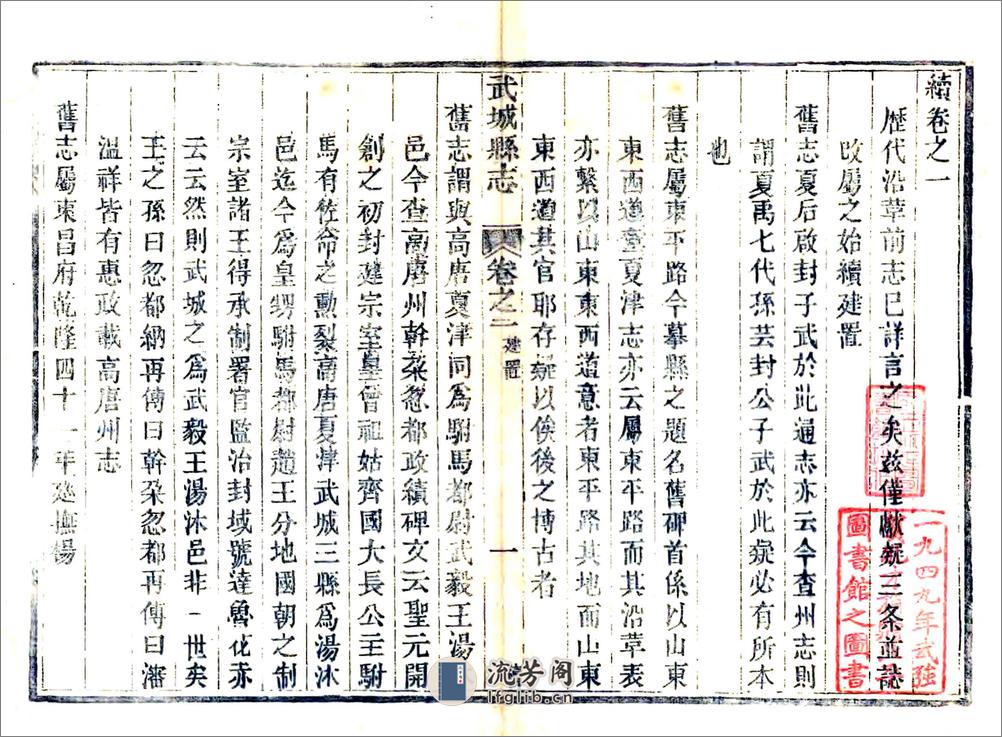 續卷之一
歷代沿革前志已詳言之矣茲僅獻疑三条並誌
改屬之始續建置
舊志夏后啟封子武於此通志亦云今查州志則
謂夏禹七代孫芸封公子武於此疑必有所本
也
舊志屬東平路今摹縣之題名舊碑首係以山東
東西道臺夏津志亦云屬東平路而其沿革表
亦繫以山東東西道意者東平路其地而山東
東西道其官耶存疑以俟後之博古者
武城縣志
卷之一
建置
一
舊志謂與高唐夏津同為駙馬都尉武毅王湯
邑今查高唐州幹朶忽都政績碑文云聖元開
創之初封建宗室皇曾祖姑齊國大長公主駙
馬有佐命之勲裂高唐夏津武城三縣爲湯沐
邑迄今爲皇甥駙馬都尉趙王分地國朝之制
宗室諸王得承制署官監治封域號達魯花赤
云云然則武城之爲武毅王湯沐邑非一世矣
王之孫曰忽都納再傳曰幹朶忽都再傳曰潘
溫祥皆有惠政載高唐州志
舊志屬東昌府乾隆四十一年巡撫楊
一九四九年武強
圖書館之圖書
流芳阁
lfglib.cn